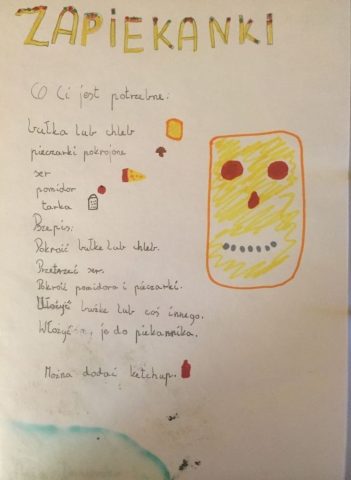 ZAPIEKANKI
Co Ci jest potrzebne:
bułka lub chleb
pieczarki pokrojone
ser
pomidor
tarka
Przepis:
Pokroić bułkę lub chleb.
Przetrzeć ser.
Pokroić pomidora i pieczarki.
Ułożyć buźkę lub coś innego.
Włożyć je do piekarnika.
Można dodać ketchup.